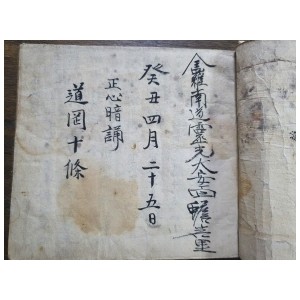 全羅南道靈光大安面蟾岩里
癸丑四月二十五日
正心暗誦
道岡十條